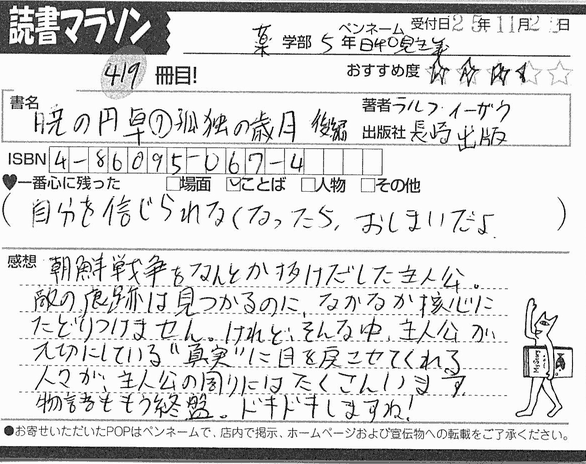 読書マラソン
薬 学部 5年 ペンネーム 受付日25年11月2 日
419 冊目! おすすめ度 ☆☆☆☆☆☆
書名 暁の円卓⑦孤独の歳月 後編
著者 ラルフ・イーザウ
出版社 長崎出版
ISBN 4-86095-067-4
♥一番心に残った □場面 ☑ことば □人物 □その他
(自分を信じられなくなったら、おしまいだよ)
感想 朝鮮戦争をなんとか抜けだした主人公。
敵の痕跡は見つかるのに、なかなか核心に
たどりつけません。けれど、そんな中、主人公が
大切にしている"真実"に目を戻させてくれる
人々が、主人公の周りにはたくさんいます。
物語ももう終盤。ドキドキしますね!
●お寄せいただいたPOPはペンネームで、店内で掲示、ホームページおよび宣伝物への転載をご了承ください。